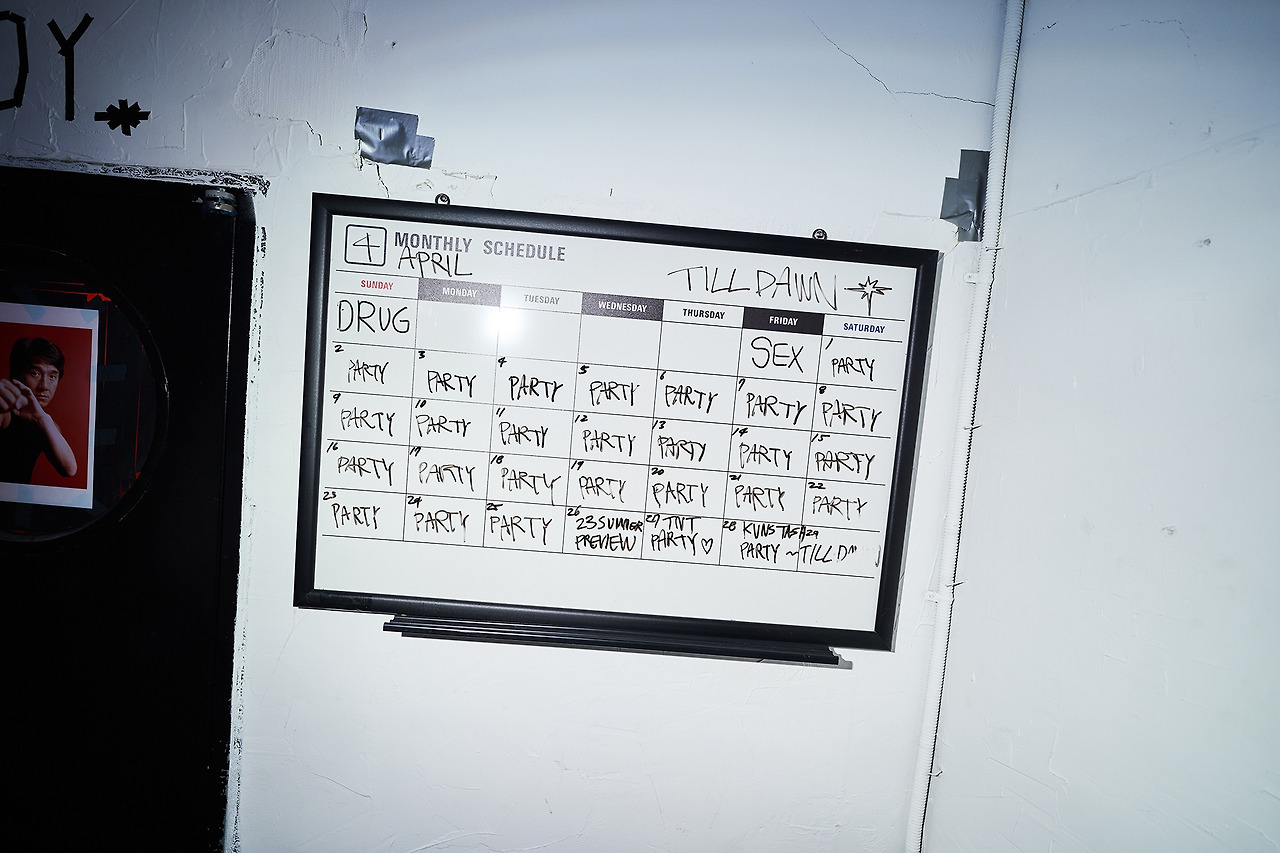 DY.*
4 MONTHLY SCHEDULE
APRIL
TILL DAWN
SUNDAY MONDAY TUESDAY WEDNESDAY THURSDAY FRIDAY SATURDAY
DRUG SEX 1 PARTY
2 PARTY 3 PARTY 4 PARTY 5 PARTY 6 PARTY 7 PARTY 8 PARTY
9 PARTY 10 PARTY 11 PARTY 12 PARTY 13 PARTY 14 PARTY 15 PARTY
16 PARTY 17 PARTY 18 PARTY 19 PARTY 20 PARTY 21 PARTY 22 PARTY
23 PARTY 24 PARTY 25 PARTY 26 23 SUMMER 27 TNT 28 KUNSTASH 29
PREVIEW PARTY ♡ PARTY ~TILL D"